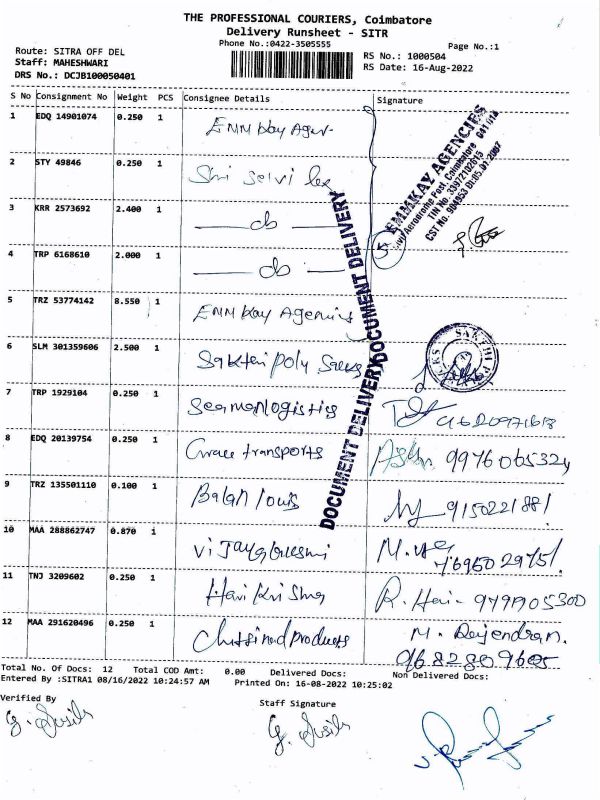 THE PROFESSIONAL COURIERS, Coimbatore
Delivery Runsheet - SITR
Phone No.:0422-3505555
Page No.:1
Route: SITRA OFF DEL
Staff: MAHESHWARI
DRS No.: DCJB100050401
RS No.: 1000504
RS Date: 16-Aug-2022
S No Consignment No Weight PCS Consignee Details Signature
1 EDQ 14901074 0.250 1 EMM kay Agen-
2 STY 49846 0.250 1 Shri Selvi
3 KRR 2573692 2.400 1 — do —
4 TRP 6168610 2.000 1 — do —
5 TRZ 53774142 8.550 1 EMM kay Agencies
6 SLM 301359606 2.500 1 Sakthi poly
7 TRP 1929104 0.250 1 Seaman logistics
8 EDQ 20139754 0.250 1 Grace transports
9 TRZ 135501110 0.100 1 Balan louis 9150221881
10 MAA 288862747 0.870 1
11 TNJ 3209602 0.250 1 Hari Krishna R. Hari-
12 MAA 291620496 0.250 1 products M. Rajendran.
EMMKAY AGENCIES
Aerodrome Post, Coimbatore 641 014
TIN No. 33972102615
5
DOCUMENT DELIVERY
DOCUMENT DELIVERY
SAKTHI
Total No. Of Docs: 12 Total COD Amt: 0.00 Delivered Docs: Non Delivered Docs:
Entered By :SITRA1 08/16/2022 10:24:57 AM Printed On: 16-08-2022 10:25:02
Verified By
Staff Signature
G. Susila
G. Susila